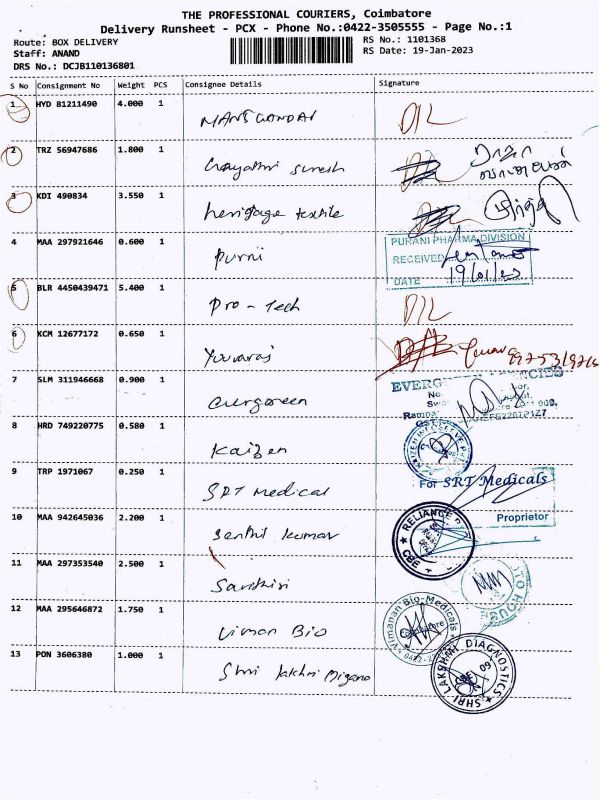 THE PROFESSIONAL COURIERS, Coimbatore
Delivery Runsheet - PCX - Phone No.:0422-3505555 - Page No.:1
Route: BOX DELIVERY
Staff: ANAND
DRS No.: DCJB110136801
RS No.: 1101368
RS Date: 19-Jan-2023
S No Consignment No Weight PCS Consignee Details Signature
1 HYD 81211490 4.000 1
2 TRZ 56947686 1.800 1 Gayathri suresh
3 KDI 490834 3.550 1 heritage textile
4 MAA 297921646 0.600 1 purni
PURANI PHARMA DIVISION
RECEIVED
DATE 19/01/23
5 BLR 4450439471 5.400 1 pro-tech
6 KCM 12677172 0.650 1 Yuvaraj
7 SLM 311946668 0.900 1 evergreen
8 HRD 749220775 0.580 1 Kaizen
9 TRP 1971067 0.250 1 SRT medical
For SRT Medicals
Proprietor
10 MAA 942645036 2.200 1 Senthil kumar
RELIANCE
CBE
11 MAA 297353540 2.500 1
12 MAA 295646872 1.750 1 Viman Bio
Vimanan Bio-Medicals
Coimbatore
13 PON 3606380 1.000 1 Shri lakshmi
SHRI LAKSHMI DIAGNOSTICS